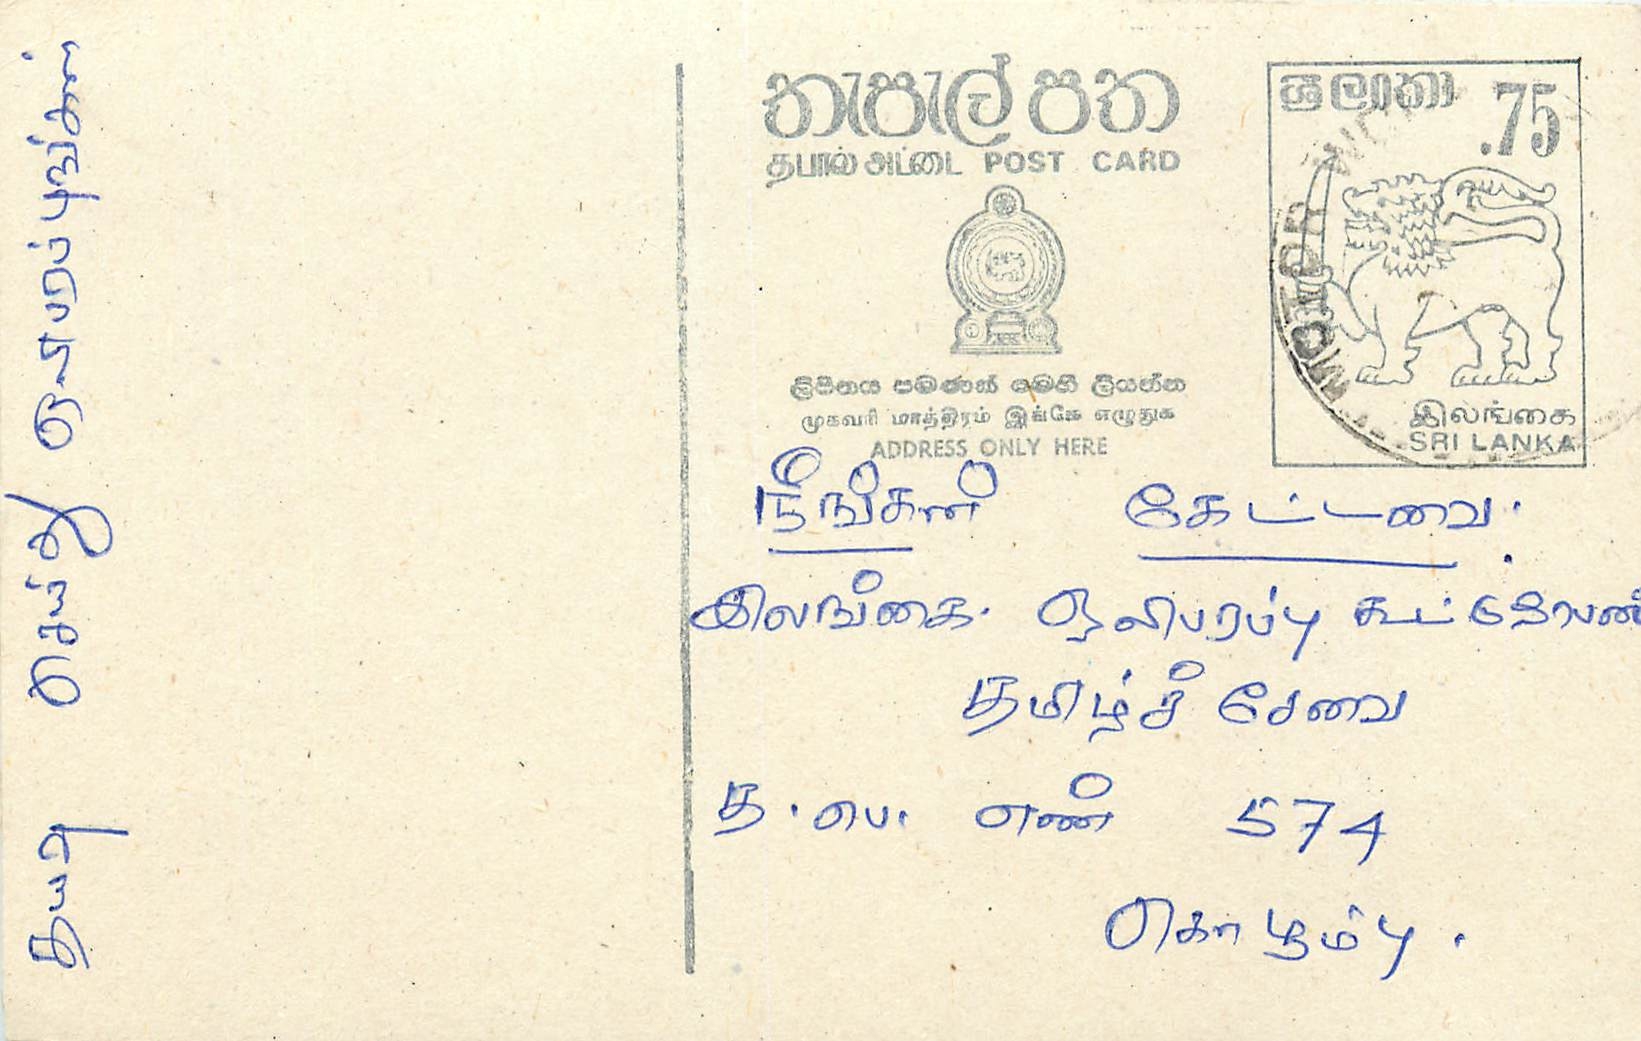 තැපැල් පත
தபால் அட்டை POST CARD
ශ්‍රී ලංකා .75
ලිපිනය පමණක් මෙහි ලියන්න
முகவரி மாத்திரம் இங்கே எழுதுக
ADDRESS ONLY HERE
இலங்கை
SRI LANKA
நீங்கள் கேட்டவை.
இலங்கை. ஒலிபரப்பு
தமிழ்ச் சேவை
த. பெ. எண் 574
கொழும்பு.
செய்து ஒலிபரப்புங்கள்